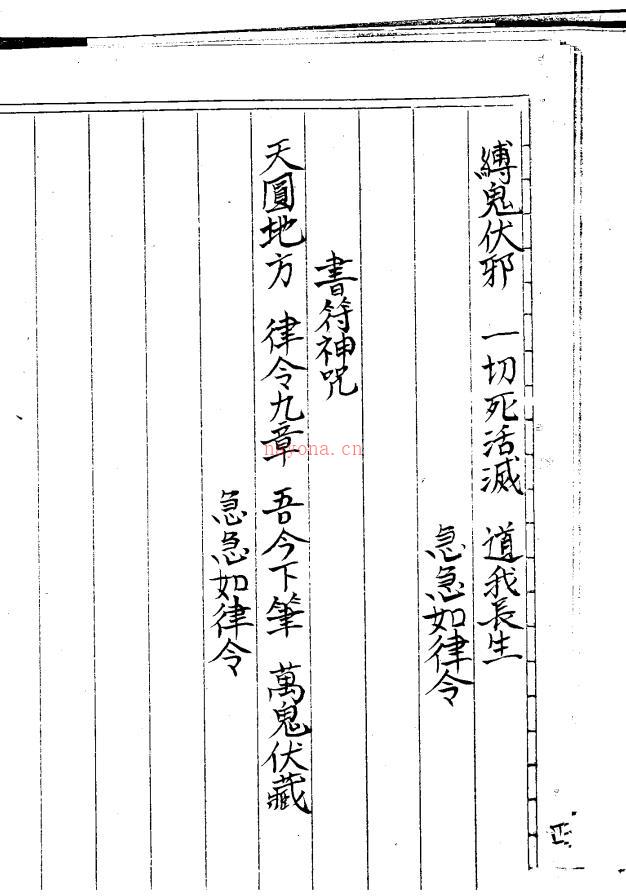 縛鬼伏邪 一切死活滅 道我長生
急急如律令
書符神咒
天圓地方 律令九章 吾今下筆 萬鬼伏藏
急急如律令
nayona.cn